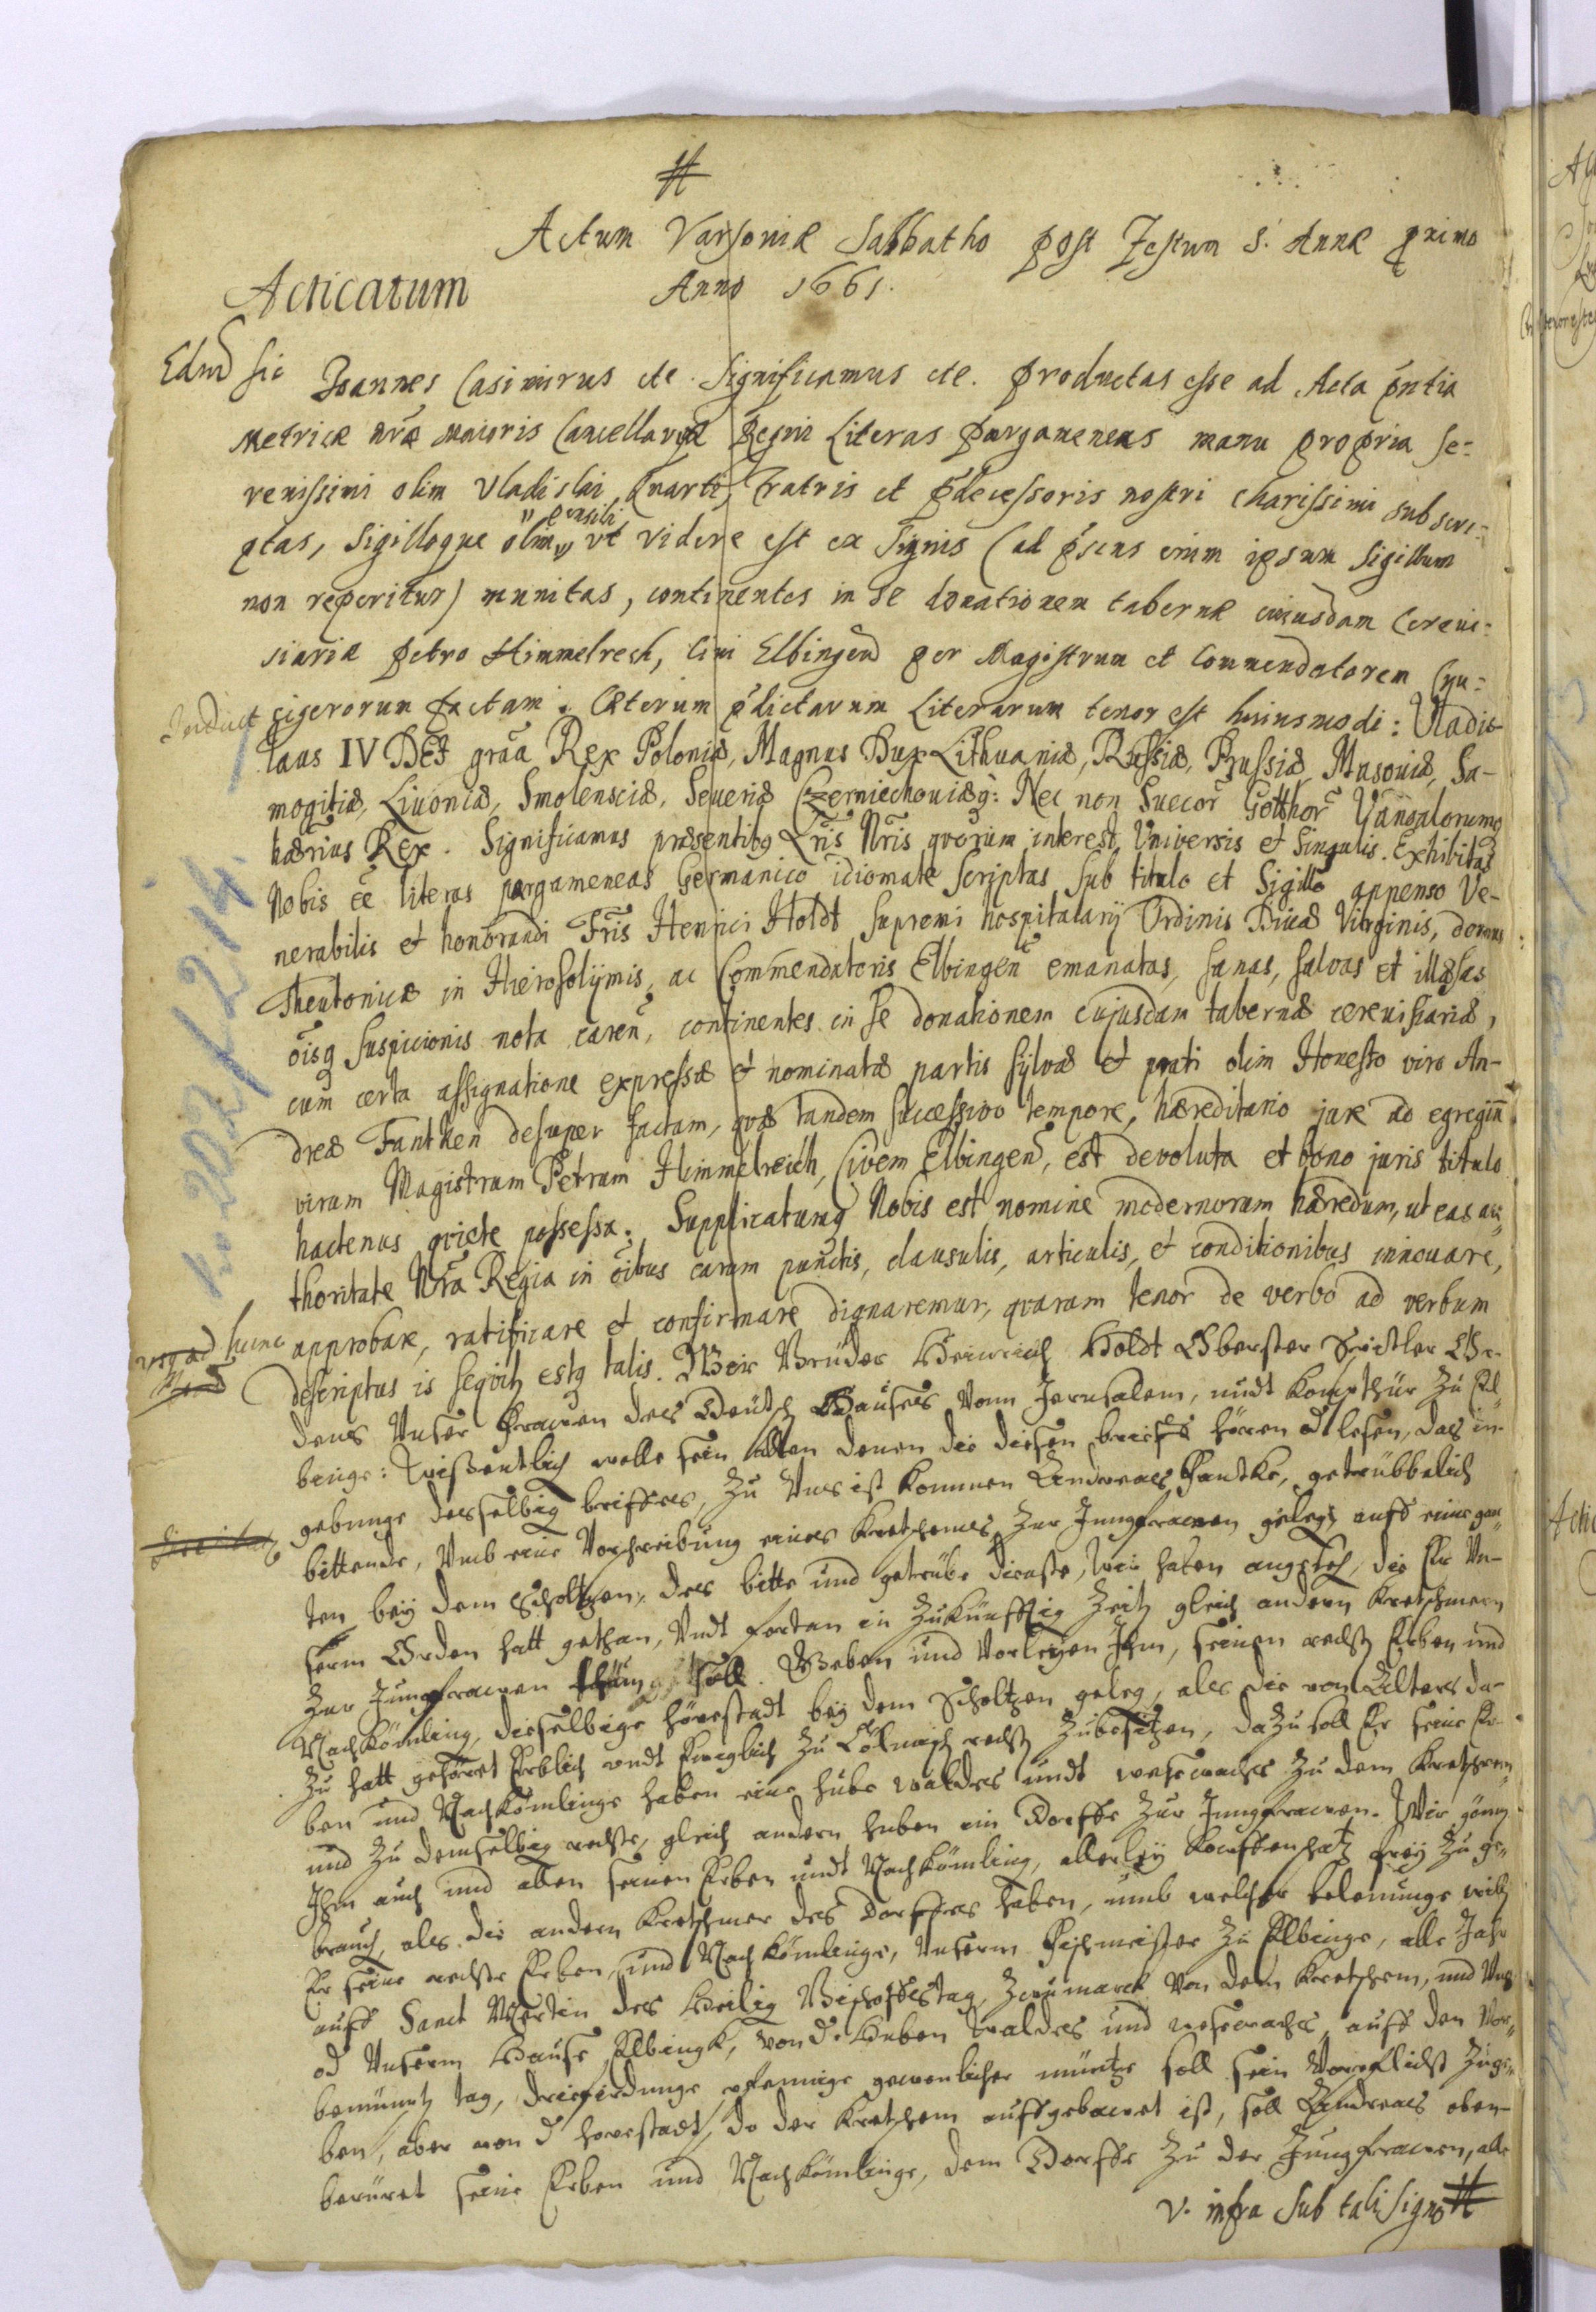 #
Actum Varsoviæ Sabbatho post Festum S. Annæ primo
Anno 1661.
Acticatum
Joannes Casimirus etc. Significamus etc. productas esse ad Acta pñtia
Metricæ nræ maioris Cancellaryæ Regni Literas pargameneas manu propria Se-
renissimi olim Vladislai Quarti, Fratris et pdecessoris nostri charissimi subscri-
ptas, Sigilloque olim pensili ut videre est ex Signis (ad psens enim ipsum Sigillum
non reperitur) munitas, continentes in se donationem tabernæ cuiusdam Cerevi-
siariæ Petro Himmelrech, Civi Elbingen per Magistrum et Commendatorem Cru-
cigerorum factam. Cæterum pdictarum Literarum tenor est huiusmodi: Vladis-
Induct
laus IV DEI graa Rex Poloniæ, Magnus Dux Lithuaniæ, Russiæ, Prussiæ, Masoviæ, Sa-
mogitiæ, Livoniæ, Smolensciæ, Severiæ Czerniechoviæq: Nec non Suecor Gotthor Vandalorumq
hærius Rex. Significamus præsentibq Lris Nris quorum interest, Universis et Singulis. Exhibitas
Nobis ee literas pargameneas Germanico idiomate Scriptas Sub titulo et Sigillo appenso Ve-
nerabilis et honorandi Fris Henrici Holdt Supremi hospitalarij Ordinis Divæ Virginis, domus
Theutonicæ in Hierosolÿmis, ac Commendatoris Elbingen emanatas, sanas, salvas et illæsas
oisq suspicionis nota caren, continentes in se donationem cujusdam tabernæ cerevisiariæ,
cum certa assignatione expressæ et nominatæ partis sÿlvæ et prati olim Honesto viro An-
dreæ Fantken desuper factam, quæ tandem successivo tempore, hæreditario jure ad egregiu
virum Magistrum Petrum Himmelreich, Civem Elbingen, est devoluta et bono juris titulo
hactenus quiete possessa. Supplicatumq Nobis est nomine modernorum hæredum, ut eas au-
thoritate Nra Regia in oibus earum punctis, clausulis, articulis, et conditionibus innovare,
approbare, ratificare et confirmare dignaremur, quarum tenor de verbo ad verbum
usq ad hunc
descriptus is seqvitr estq talis. Wir Bruder Heinrich Holdt Oberster Spittler Or-
dens Unser Frawen des Deutsch Hauses vonn Jerusalem, undt Kompthur zu El-
binge: Wissentlich wolle sein allen denen die diesen brieffe hören od lesen, das in-
gebunge desselbig brieffes, zu Uns ist kommen Andreas Fantke,
bittende, Umb eine Verschreibung eines Kretzemes zur Jungfrawen gelegen
ten bey dem Scholtzen, des bitte und getrübe dienste, wir haben angesehn, die Er Un-
serm Orden hatt gethan, Undt fortan in zukünfftig Zeitn gleich andern Kretschmern
zur Jungfrawen soll. Geben und Vorleyen Ihm, seinen rechtn Erben und
Nachkömling, dieselbige hovestadt bey dem Scholtzen gelegn, als die von Alters da-
zu hatt gehöret Erblich undt Ewiglich zu Cölmisch recht zubesitzen, dazu soll Er seine Er-
ben und Nachkömlinge haben eine hube waldes undt wesewachs zu dem Kretzem
und zu demselbig rechte, gleich andern huben im Dorffe zur Jungfrawen. Wir gönnen
Ihm auch und allen seinen Erben undt Nachkömling, allerleÿ freÿ zu ge-
brauch, als die andern Kretzmer des Dorffes haben, umb welcher belenunge willn
Er seine rechte Erben, und Nachkömlinge, Unserm Fischmeister zu Elbinge, alle Jahr
auff Sanct Merten des Heilig Bischoffs tag, marck von dem Kretzem, und Uns
od Unserm Hause Elbingk, von d Huben Waldes und wesewachs auff den Vor-
benumtn tag, pfennige gewonlicher müntze soll sein zuge-
ben, aber von d hovestadt, do der Kretzem auffgebawet ist, soll Andreas oben-
berüret seine Erben und Nachkömlinge, dem Dorffe zu der Jungfrawen, alle
v. infra sub tali signo #